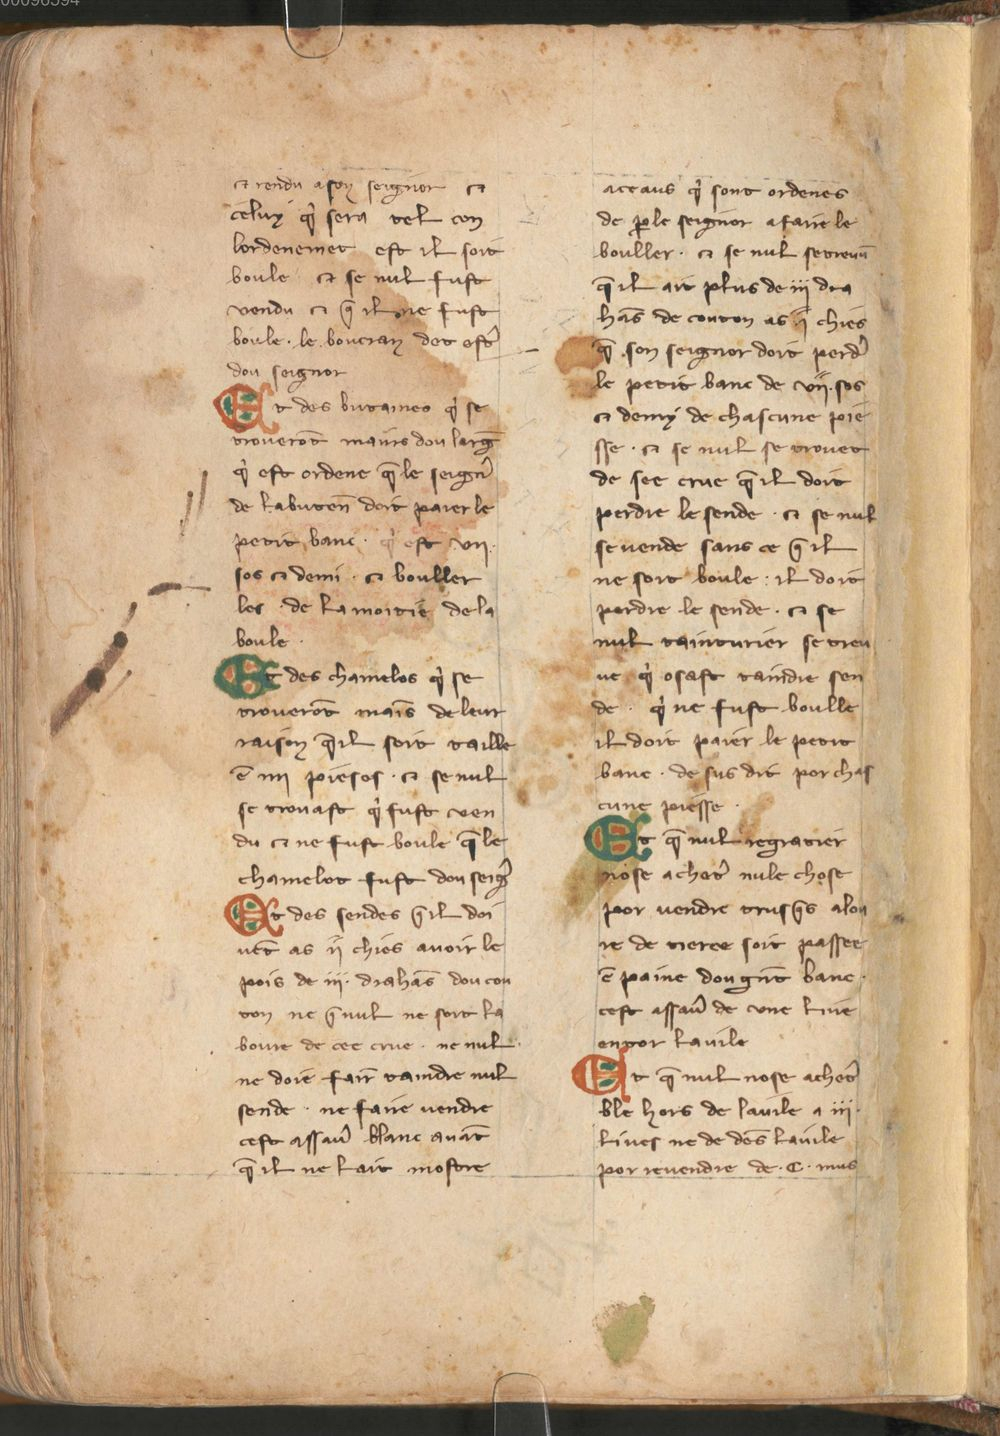 00096394
et rendu a son seignor et
celuy q̇ sera tel con
lordenemet est il soit
boule et se nul fust
vendu et q̃ il ne fust
boule. le boucran det estr̃
dou seignor
Et des butaineo q̇ se
troverõt mains dou larg̃
q̇ est ordene q̃ le seignr̃
de labuten̄ doit paier le
petit banc. q̇ est vii.
sos et demi. et bouller
les. de la moitie de la
boule.
Et des chamelos q̇ se
troverõt mais̃ de leur
raison q̃ il soit taille
ẽ iiii piesos. et se nul
se trovast q̇ fust ven
du et ne fust boule q̃ le
chamelot fust dou seigr̃
Et des sendes q̃ il doi
vẽt as ii chies avoir le
pois de iii. drahãs dou cou
ton ne q̃ nul ne soit la
boure de cee crue. ne nul
ne doie fair̃ taindre nul
sende. ne faire vendre
cest assav̄ blanc avãt
q̃ il ne lait mostre
aceaus q̇ sont ordenes
de ꝑ le seignor a faire le
bouller. et se nul se treuũ
q̃ il ait plus de iii dra
hãs de couton as ii chies
q̃ son seignor doit perdr̃
le petit banc de vii. sos
et demy de chascune pie
sse. et se nul se trovet
de see crue q̃ il doit
perdre le sende. et se nul
se vende sans ce q̃ il
ne soit boule: il doit
perdre le sende. et se
nul tainturier se treu
ue q̇ osast taindre sen
de. q̇ ne fust boulle
il doit paier le petit
banc. de sus dit por chas
cune piesse.
Et q̃ nul regratier
nose achetr̃ nule chose
por vendre trusq̃s alou
re de tierce soit passee
ẽ paine dou grãt banc.
cest assav̄ de vne livre
entor lavile
Et q̃ nul nose achetr̃
ble hors de lavile a iii.
lives ne de dẽs lavile
por revendre de. C. mus